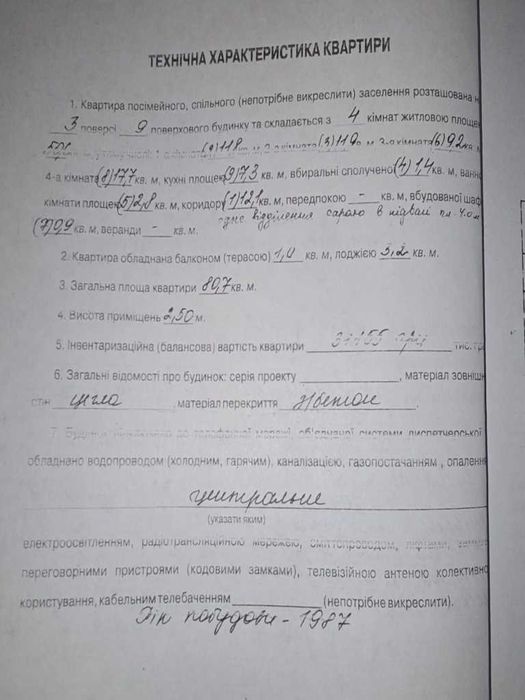 ТЕХНІЧНА ХАРАКТЕРИСТИКА КВАРТИРИ
1. Квартира посімейного, спільного (непотрібне викреслити) заселення розташована н
3 поверсі 9 поверхового будинку та складається з 4 кімнат житловою площею
(2)11,8 (3)11,9 3-а кімната (6)9,2 кв. м
4-а кімната (8)17,7 кв. м, кухні площею (9)7,3 кв. м, вбиральні сполученої (4)1,4 кв. м, ванн
кімнати площею (5)2,8 кв. м, коридору (1)12,1 кв. м, передпокою - кв. м, вбудованої шаф
одне відділення сараю в підвалі пл. 4.0 м
(7)0,9 кв. м, веранди - кв. м.
2. Квартира обладнана балконом (терасою) 1,0 кв. м, лоджією 3,2 кв. м.
3. Загальна площа квартири 80,7 кв. м.
4. Висота приміщень 2,50 м.
5. Інвентаризаційна (балансова) вартість квартири грн тис. гр
6. Загальні відомості про будинок: серія проекту , матеріал зовніш
стін цегла , матеріал перекриття з/бетон .
обладнано водопроводом (холодним, гарячим), каналізацією, газопостачанням , опаленн
центральне
(указати яким)
електроосвітленням, радіотрансляційною мережею, сміттєпроводом,
переговорними пристроями (кодовими замками), телевізійною антеною колективно
користування, кабельним телебаченням (непотрібне викреслити).
Рік побудови - 1987